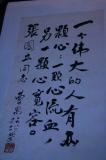 一个伟大的人有两
颗心：一颗心流血，
另一颗心宽容。
张国立同志